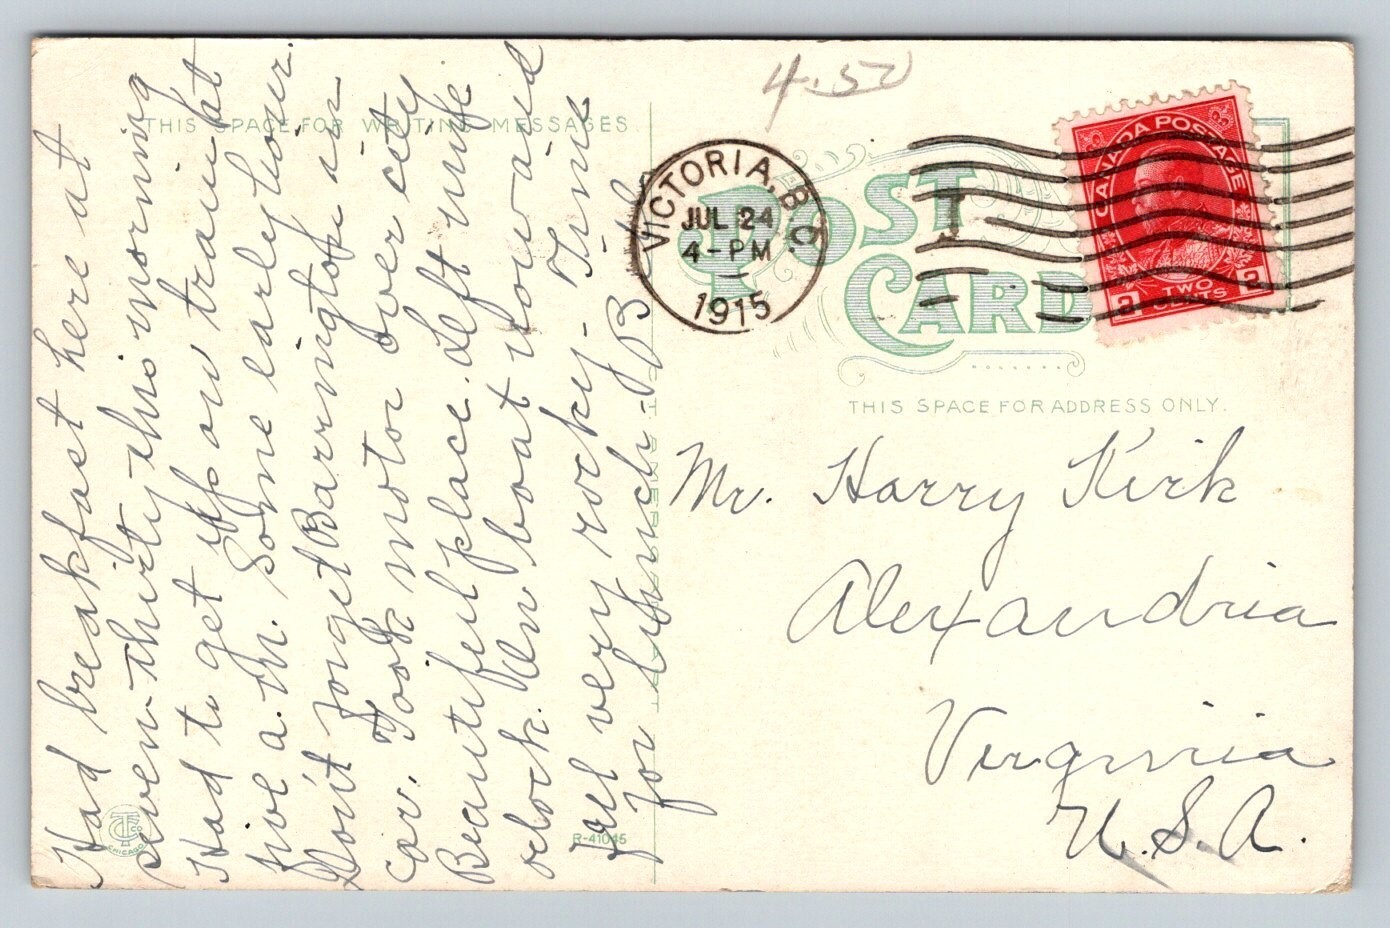 THIS SPACE FOR WRITING MESSAGES
Had breakfast here at
seven-thirty this morning
Had to get up and train at
five a.m. Some early hour.
Don't forget Barrington in
car. Took motor over city
Beautiful place. Left nine
oclock. On boat now and
feel very rocky- Time
for lunch- B
4.50
VICTORIA, B.C.
JUL 24
4-PM
1915
CANADA POSTAGE
2 TWO CENTS 2
POST
CARD
THIS SPACE FOR ADDRESS ONLY.
Mr. Harry Kirk
Alexandria
Virginia
U.S.A.
CHICAGO
R-41045